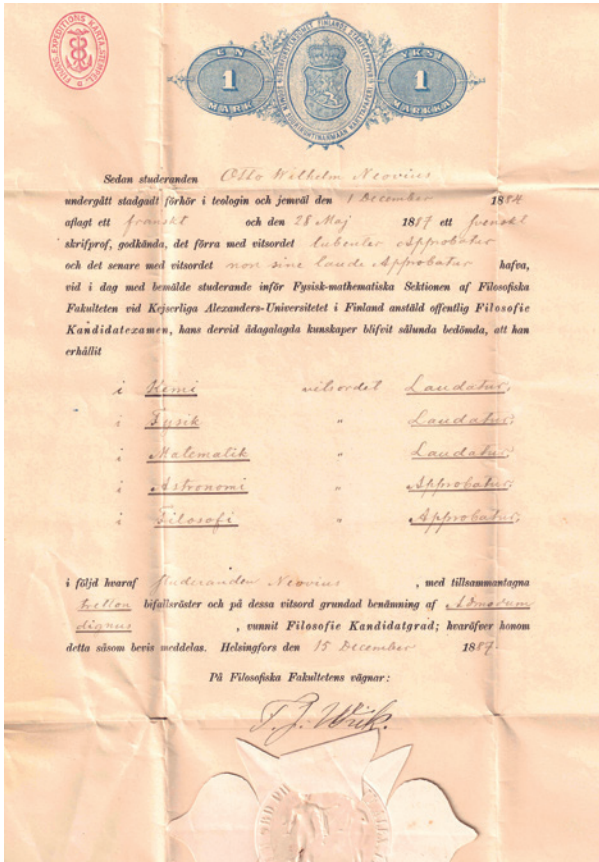 FINANS-EXPEDITIONS KARTA-STEMPEL
EN
1
MARK
YKSI
1
MARKKA
Sedan studeranden Otto Wilhelm Neovius
undergått stadgadt förhör i teologin och jemväl den 1 December 1884
aflagt ett franskt och den 28 Maj 1887 ett svenskt
skrifprof, godkända, det förra med vitsordet lubenter Approbatur
och det senare med vitsordet non sine laude Approbatur hafva,
vid i dag med bemälde studerande inför Fysisk-mathematiska Sektionen af Filosofiska
Fakulteten vid Kejserliga Alexanders-Universitetet i Finland anstäld offentlig Filosofie
Kandidatexamen, hans dervid ådagalagda kunskaper blifvit sålunda bedömda, att han
erhållit
i Kemi vitsordet Laudatur,
i Fysik " Laudatur,
i Matematik " Laudatur,
i Astronomi " Approbatur,
i Filosofi " Approbatur,
i följd hvaraf studeranden Neovius , med tillsammantagna
tretton bifallsröster och på dessa vitsord grundad benämning af Admodum
dignus , vunnit Filosofie Kandidatgrad; hvaröfver honom
detta såsom bevis meddelas. Helsingfors den 15 December 1887.
På Filosofiska Fakultetens vägnar: